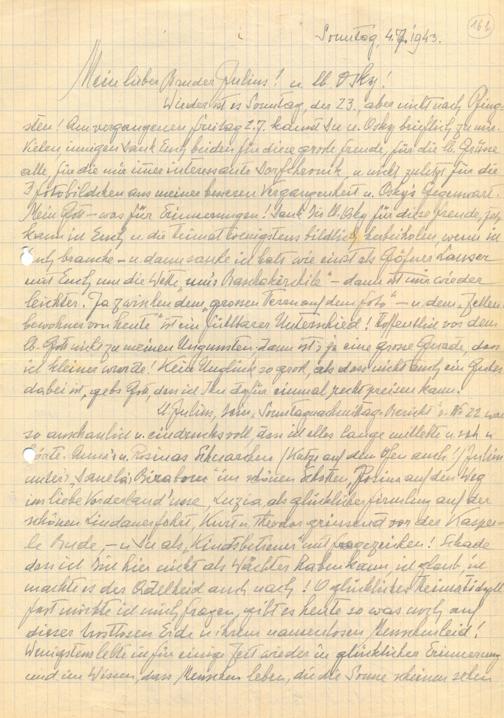 161
Sonntag, 4.7.1943.
Mein lieber Bruder Julius! u. lb. Osky!
Wieder ist es Sonntag, der 23., aber nicht nach Pfing-
sten! Am vergangenen Freitag 2.7. kamst Du u. Osky brieflich zu mir.
Vielen innigen Dank Euch beiden für diese grosse Freude, für die lb. Grüsse
alle, für die mir immer interessante Dorfchronik u. nicht zuletzt für die
3 Fotobildchen aus meiner besseren Vergangenheit u. Osky's Gegenwart.
Mein Gott – was für Erinnerungen! Dank Dir lb. Osky für diese Freude, jetzt
kann ich Euch u. die Heimat wenigstens bildlich herbeiholen, wenn ich
Euch brauche – u. dann
mit Euch um die Wette, – dann ist mir wieder
leichter. Ja zwischen dem "grossen Herrn auf dem Foto" – u. dem "Zellen-
bewohner von heute" ist ein fühlbarer Unterschied! Hoffentlich vor dem
lb. Gott nicht zu meinen Ungunsten, dann ist's ja eine grosse Gnade, dass
ich kleiner wurde! Kein Unglück so gross, als dass nicht auch ein Gutes
dabei ist, gebs Gott, dass ich Ihn dafür einmal recht preisen kann!
Julius, Dein Sonntagnachmittags-Bericht v. No 22 war
so anschaulich u. eindrucksvoll, dass ich alles Lange miterlebte u. sah u.
hörte. Anna's u. Rosinas Schnarchen (Katze auf dem Ofen auch!)
im schönen Schatten, Rosina auf dem Weg
ins liebe Vorderland, Luzia, als glücklicher Firmling auf der
schönen Lindauerfahrt, Kurt u. Theodor grinsend vor der Kasper-
le Bude, – u. Du als "Kindsbetreuer" mit! Schade
dass ich Dich hier nicht als Wächter haben kann, ich glaub, ich
machte es der Adelheid auch nach! O glückliches Heimatidyll
fast möchte ich mich fragen, gibt es heute so was noch auf
dieser trostlosen Erde u. ihrem namenlosen Menschenleid!
Wenigstens lebte ich für einige Zeit wieder in glücklicher Erinnerung
und im Wissen, dass Menschen leben, die die Sonne scheinen sehen